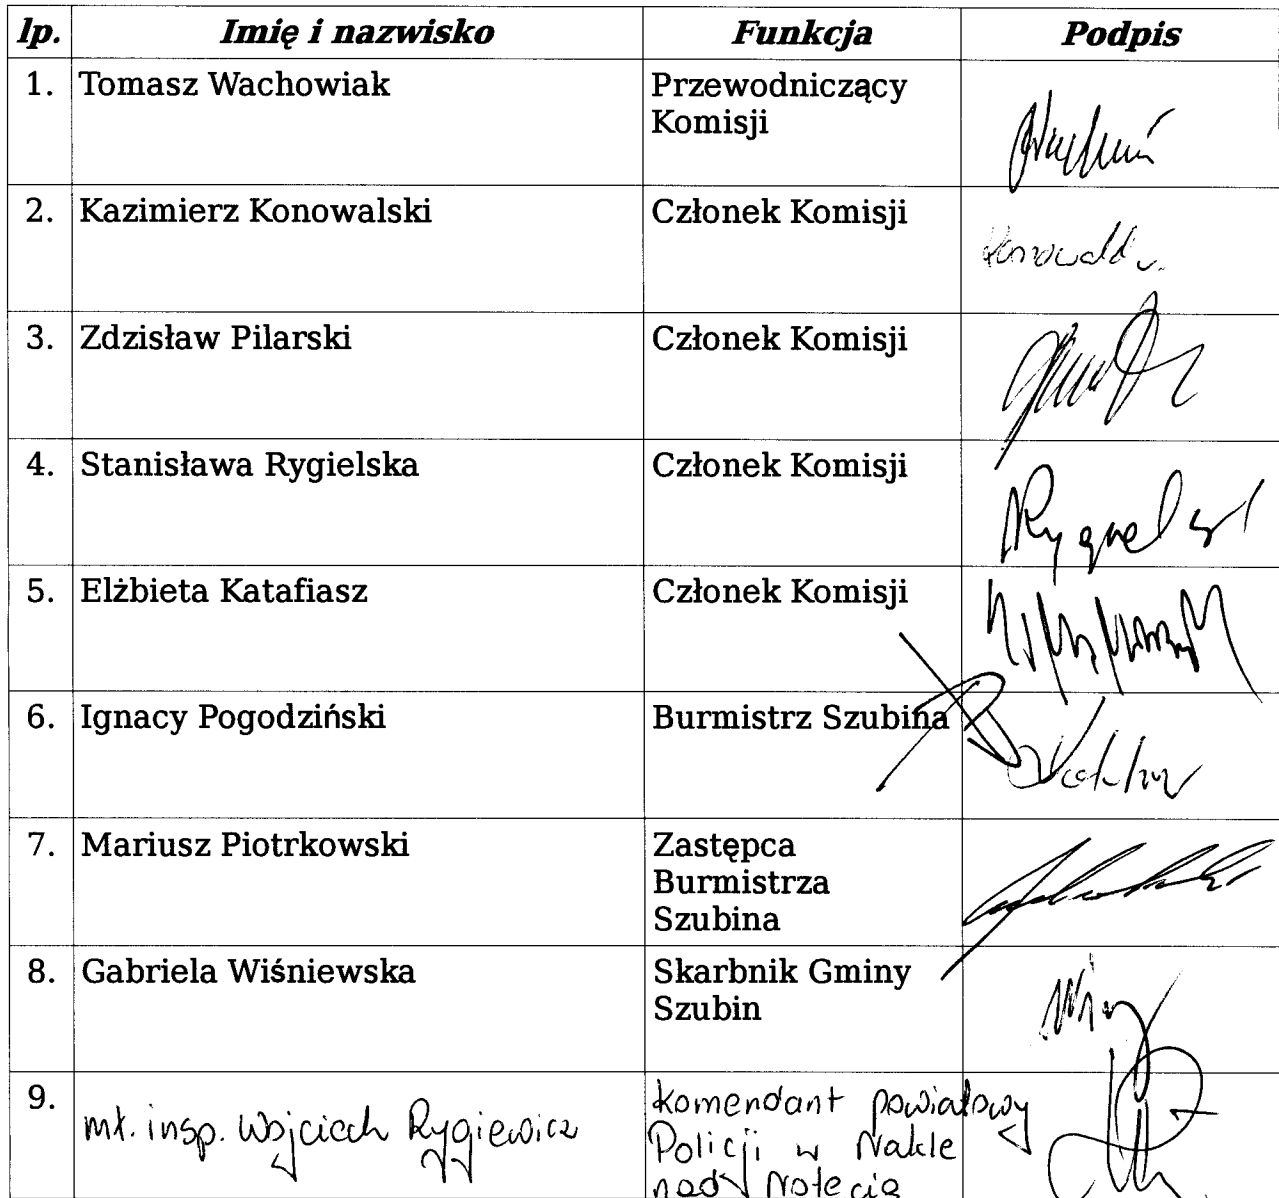 lp. Imię i nazwisko Funkcja Podpis
1. Tomasz Wachowiak Przewodniczący
Komisji
2. Kazimierz Konowalski Członek Komisji
3. Zdzisław Pilarski Członek Komisji
4. Stanisława Rygielska Członek Komisji
5. Elżbieta Katafiasz Członek Komisji
6. Ignacy Pogodziński Burmistrz Szubina
7. Mariusz Piotrkowski Zastępca
Burmistrza
Szubina
8. Gabriela Wiśniewska Skarbnik Gminy
Szubin
9. mł. insp. Wojciech Rygiewicz Komendant powiatowy
Policji w Nakle
nad Notecią